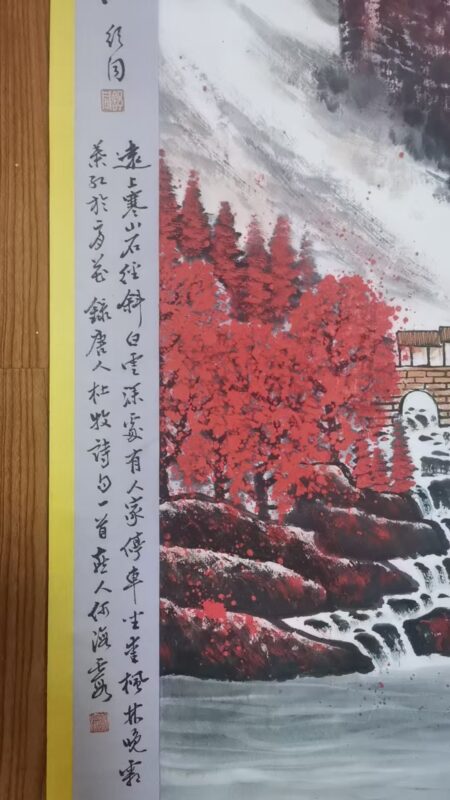 遠上寒山石徑斜白雲深處有人家停車坐愛楓林晚霜
葉红於二月花錄唐人杜牧詩句一首人何海霞